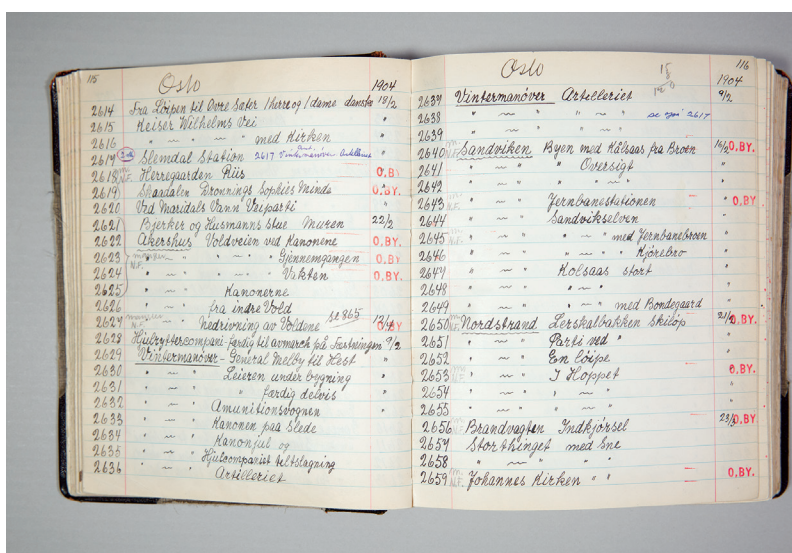 115 Oslo 1904
2614 Fra Löipen til Övre Sæter 1 herre og 1 dame danske 18/2
2615 Keiser Wilhelms Vei "
2616 " ~ " med Kirken "
2617 Slemdal Station 2617 Vintermanöver Artilleriet "
2618 N.F. Herregaarden Riis O.BY.
2619 Skaadalen Dronnings Sophies Minde O.BY.
2620 Ved Maridals Vann Veiparti "
2621 Bjerker og Husmanns stue Muren 22/2
2622 Akershus Voldveien ved Kanonene O.BY.
2623 mangler " ~ " ~ " Gjennemgangen O.BY.
2624 N.F. " ~ " ~ " Vakten O.BY.
2625 " ~ " Kanonerne "
2626 " ~ " fra indre Vold "
2627 mangler N.F. " ~ " Nedrivning av Voldene se 865 12/4 O.BY
2628 Hjulryttercompani færdig til avmarch på Fæstningen 9/2
2629 Vintermanöver - General Melby til Hest "
2630 " ~ " Leieren under bygning "
2631 " ~ " " færdig delvis "
2632 " ~ " Amunitionsvognen "
2633 " ~ " Kanonen paa Slede "
2634 " ~ " Kanonhjul og
2635 " ~ " Hjulcompaniet teltslagning
2636 " ~ " Artilleriet
Oslo 116
1904
2637 Vintermanöver Artilleriet 9/2
2638 " ~ " ~ " se også 2617
2639 " ~ " ~ "
2640 N.F. Sandviken Byen med Kolsaas fra Broen 15/2 O.BY.
2641 " ~ " Oversigt "
2642 " ~ " " ~ " "
2643 N.F. " ~ " Jernbanestationen O.BY
2644 " ~ " Sandvikselven "
2645 N.F. " ~ " " ~ " med Jernbanebroen "
2646 N.F. " ~ " " ~ " Kjörebro "
2647 " ~ " Kolsaas stort "
2648 " ~ " " ~ " "
2649 " ~ " " ~ " med Bondegaard "
2650 N.F. Nordstrand Lerskalbakken Skilöp 21/2 O.BY.
2651 " ~ " Parti ved " "
2652 " ~ " En löipe "
2653 N.F. " ~ " I Hoppet O.BY.
2654 " ~ " " ~ " "
2655 " ~ " " ~ " "
2656 N.F. Brandvagten Indkjörsel 23/3 O.BY.
2657 Storthinget med Sne "
2658 " ~ " " " "
2659 N.F. Johannes Kirken " " O.BY.